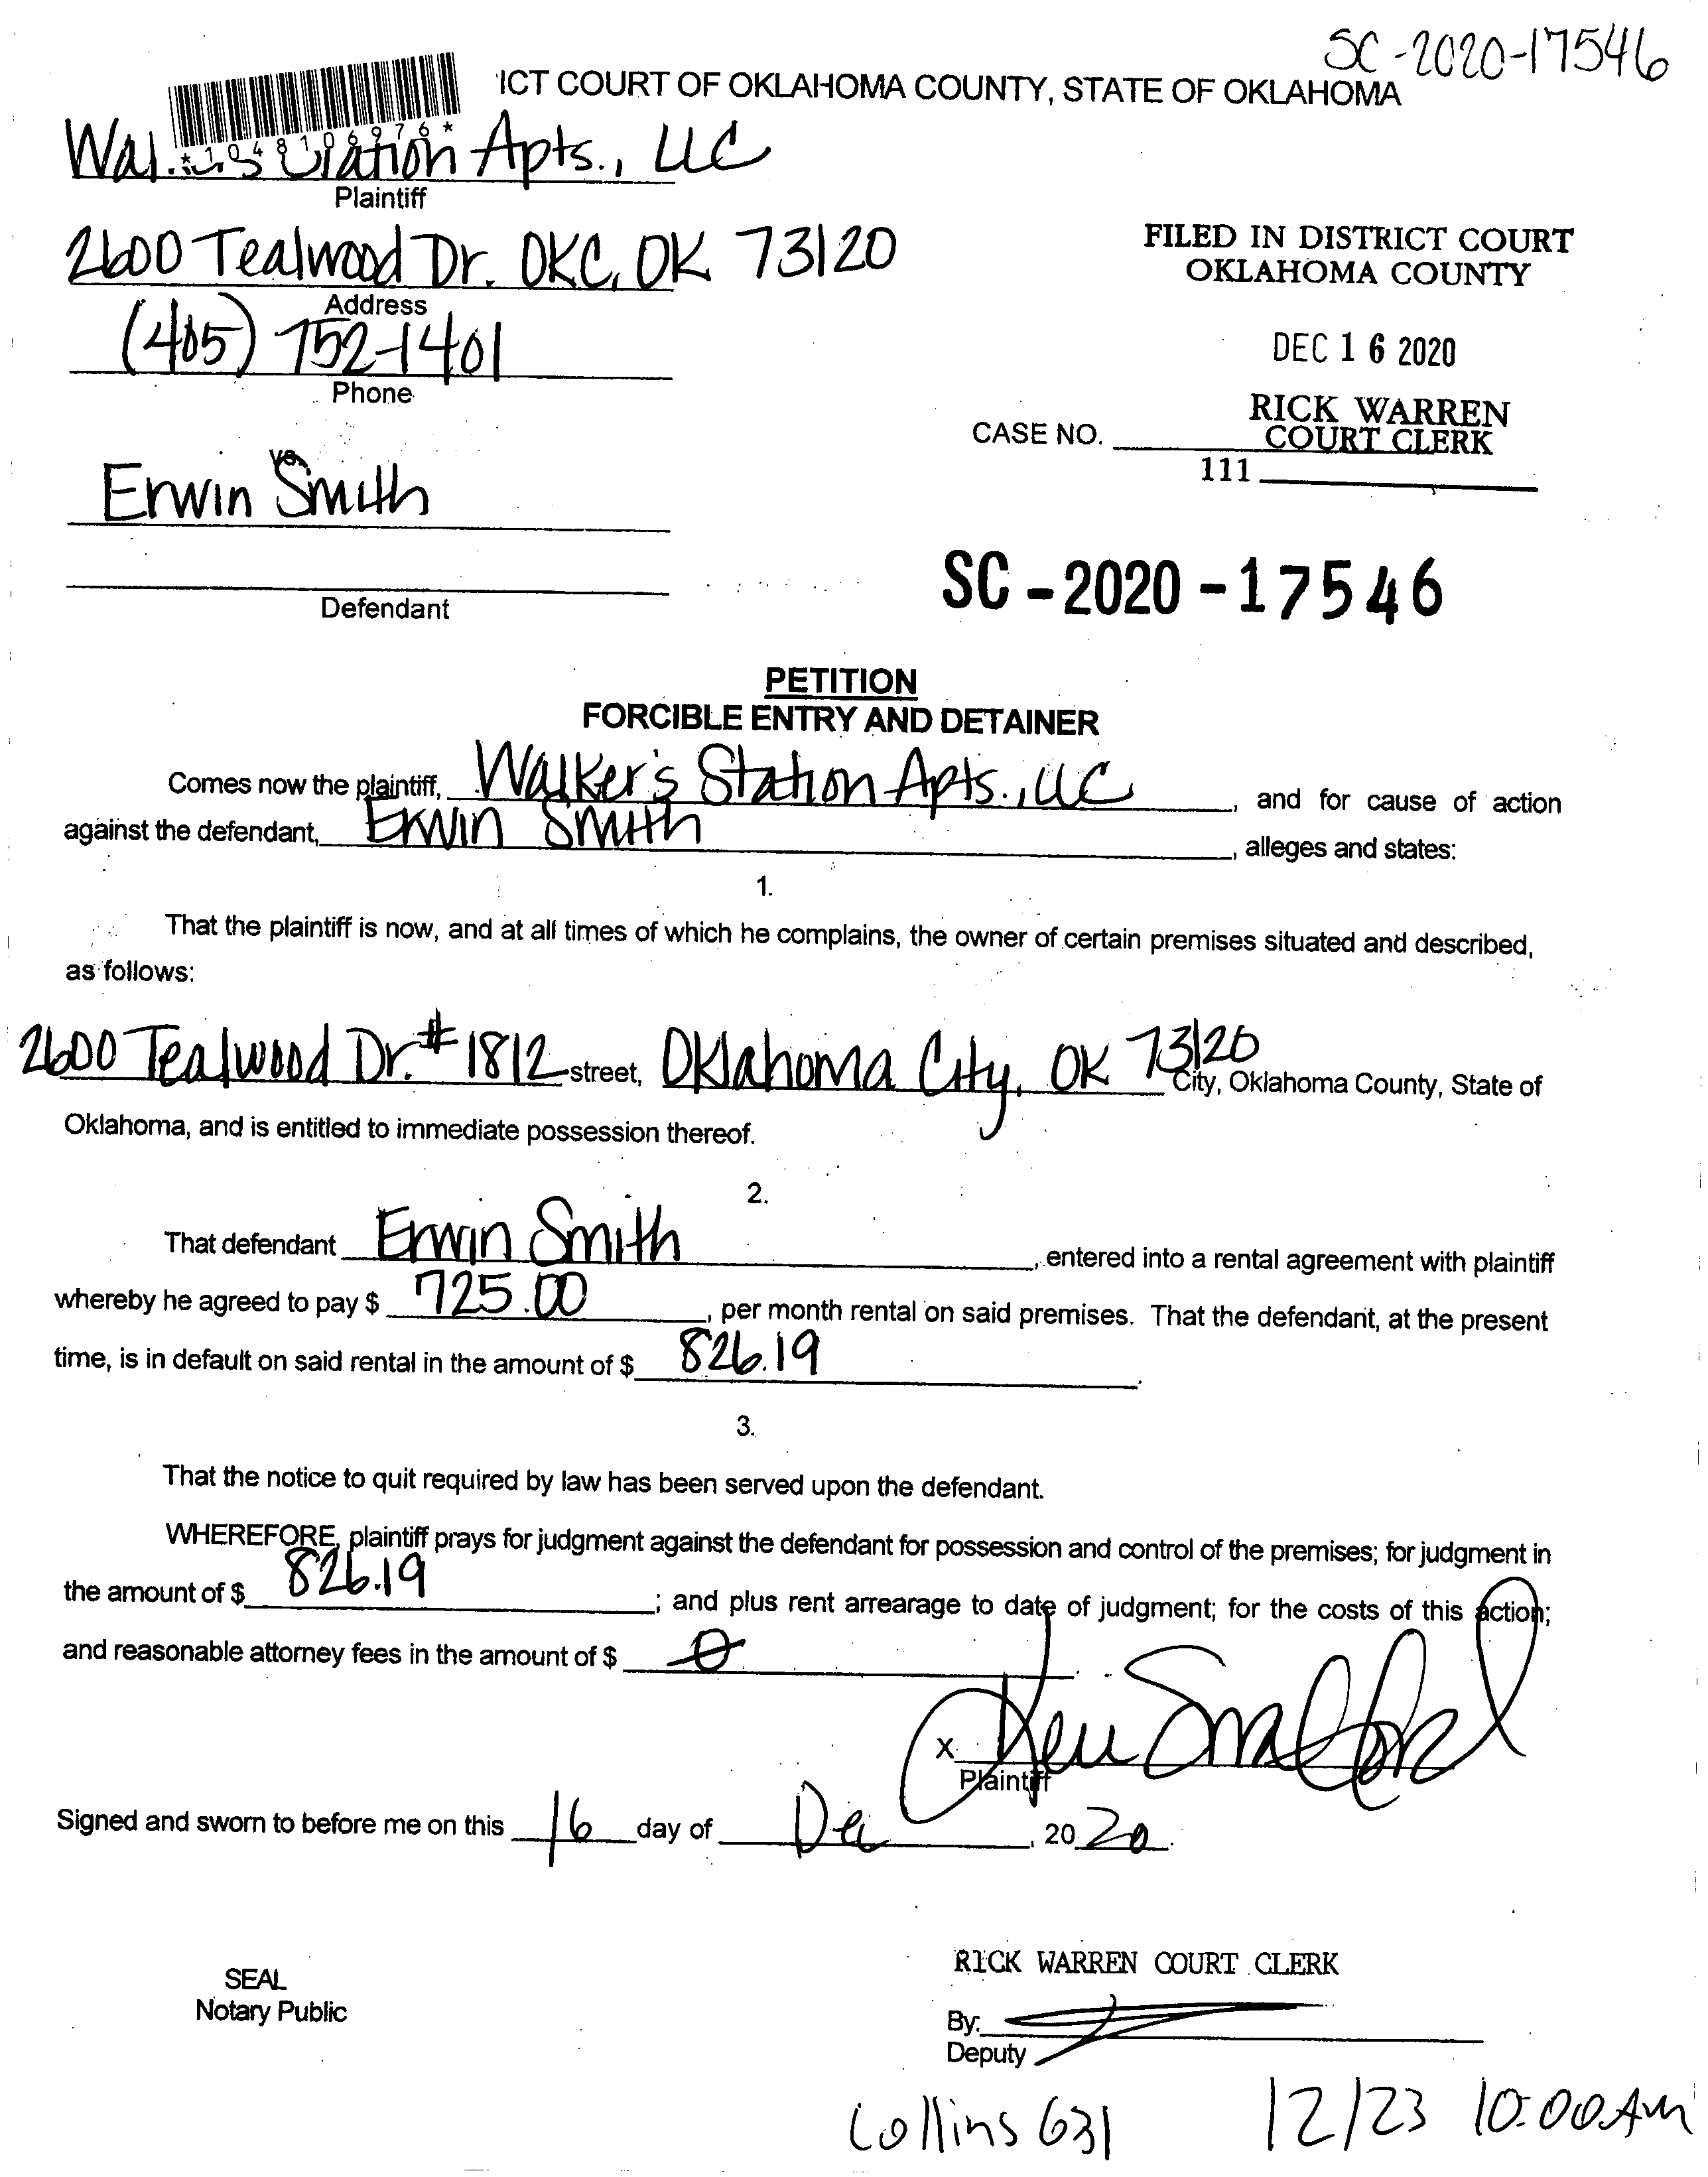 SC-2020-17546
ICT COURT OF OKLAHOMA COUNTY, STATE OF OKLAHOMA
*1048106976*
Station Apts., LLC
Plaintiff
2600 Tealwood Dr. OKC, OK 73120
Address
(405) 752-1401
Phone
FILED IN DISTRICT COURT
OKLAHOMA COUNTY
DEC 16 2020
RICK WARREN
COURT CLERK
CASE NO.
111
vs.
Erwin Smith
Defendant
SC-2020-17546
PETITION
FORCIBLE ENTRY AND DETAINER
Comes now the plaintiff, Walker's Station Apts., LLC, and for cause of action
against the defendant, Erwin Smith, alleges and states:
1.
That the plaintiff is now, and at all times of which he complains, the owner of certain premises situated and described,
as follows:
2600 Tealwood Dr. #1812 street, Oklahoma City, OK 73120 City, Oklahoma County, State of
Oklahoma, and is entitled to immediate possession thereof.
2.
That defendant Erwin Smith, entered into a rental agreement with plaintiff
whereby he agreed to pay $ 725.00, per month rental on said premises. That the defendant, at the present
time, is in default on said rental in the amount of $ 826.19.
3.
That the notice to quit required by law has been served upon the defendant.
WHEREFORE, plaintiff prays for judgment against the defendant for possession and control of the premises; for judgment in
the amount of $ 826.19; and plus rent arrearage to date of judgment; for the costs of this action;
and reasonable attorney fees in the amount of $ 0.
X
Plaintiff
Signed and sworn to before me on this 16 day of Dec, 2020.
SEAL
Notary Public
RICK WARREN COURT CLERK
By:
Deputy
Collins 631 12/23 10:00 AM